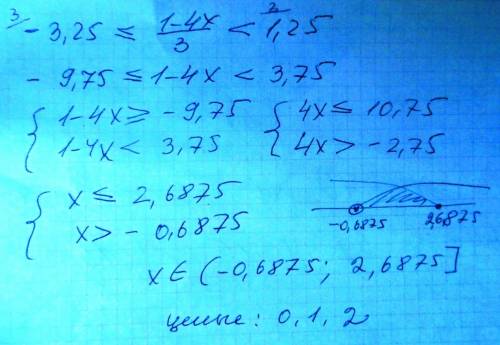 3 - 3,25 ≤ (1-4x)/3 < 1,25 3
- 9,75 ≤ 1-4x < 3,75
{ 1-4x ≥ - 9,75 { 4x ≤ 10,75
1-4x < 3,75 4x > - 2,75
{ x ≤ 2,6875
x > - 0,6875
-0,6875 2,6875
x ∈ (-0,6875; 2,6875]
целые: 0, 1, 2